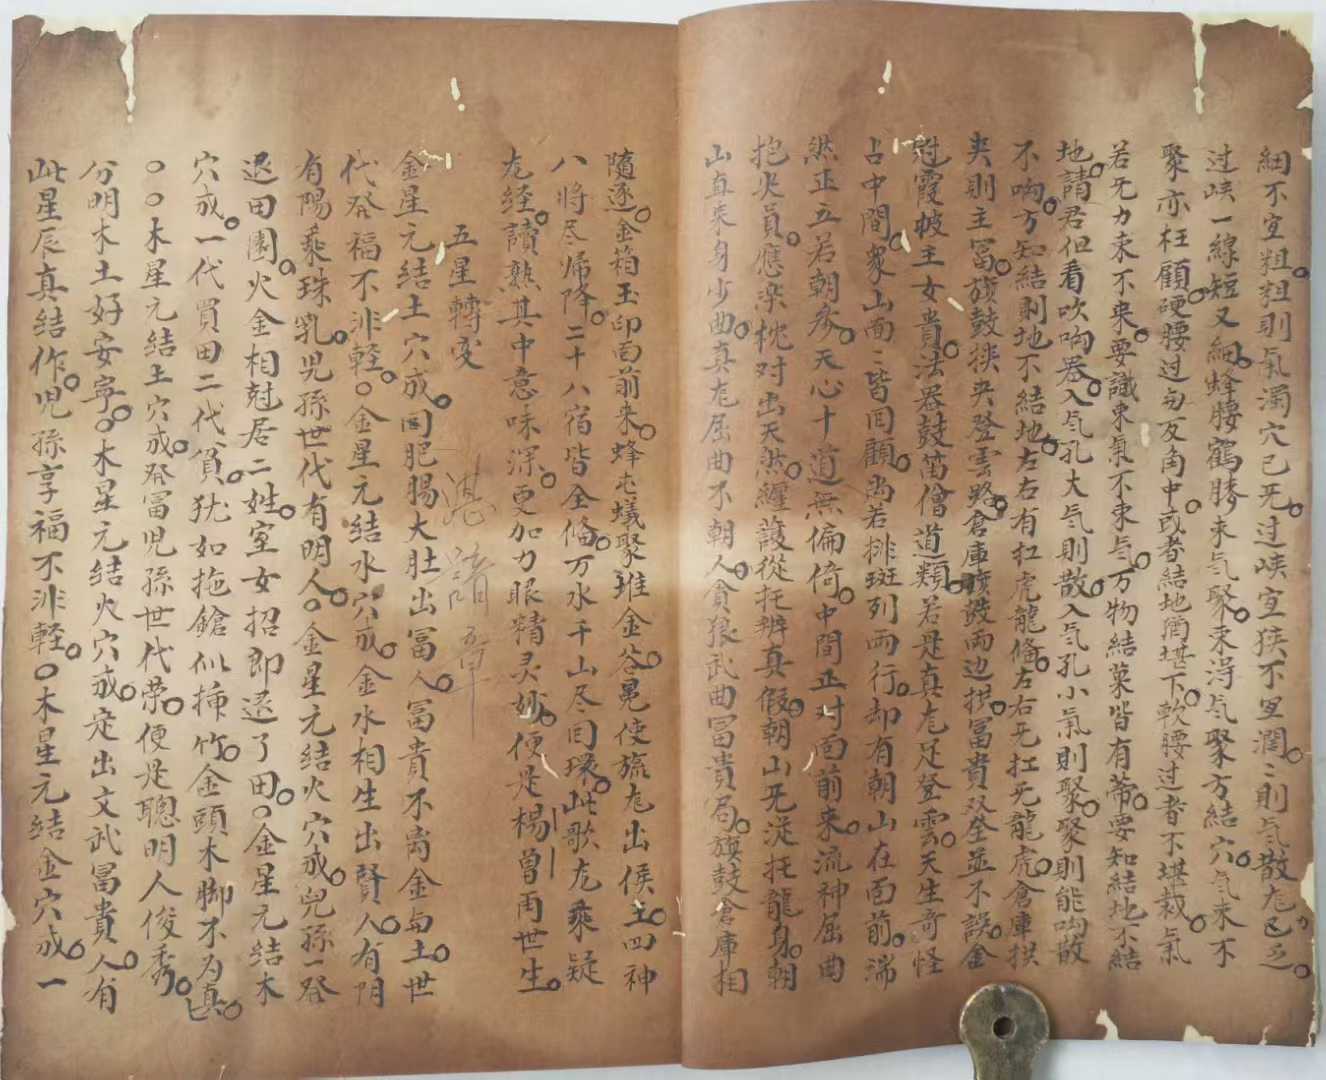 細不宜粗。粗則氣濁穴已无。过峽宜狹不宜濶。〻則气散龙已乏。
过峡一線短又細。蜂腰鶴膝来气聚。来淂气聚方結穴。气来不
聚亦枉顧。硬腰过与反角中。或者結地猶堪下。軟腰过者不堪裁。氣
若无力来不来。要識来氣不来气。万物結菓皆有蒂。要知結地不結
地。請君但看吹响器。入气孔大气則散。入气孔小氣則聚。聚則能响散
不响。方知結則地不結地。左右有扛虎龍脩。左右无扛无龍虎。倉庫拱
夹則主冨。旗鼓挾夹登雲路。倉庫旗鼓両边拱。冨貴双筌並不誤。金
冠霞帔主女貴。法器鼓笛僧道類。若是真龙足登雲。天生奇怪
占中間。衆山面〻皆囘顧。尚若排班列両行。却有朝山在面前。湍
然正立若朝參。天心十道無偏倚。中間正对面前来。流神屈曲
抱必員。應楽枕对出天然。纏護從托辨真假。朝山无從托龍身。朝
山真来身少曲。真龙屈曲不朝人。貪狼武曲冨貴局。旗鼓倉庫相
隨逐。金箱玉印面前来。蜂屯蟻聚堆金谷。冕使旒龙出侯王。四神
八將尽帰降。二十八宿皆全俻。万水千山尽囘環。此歌龙乘疑
龙経。讀熟其中意味深。更加力眼精灵妙。便是楊曽両世生。
五星轉变
金星元結土穴成。囘肥腸大肚出冨人。冨貴不离金与土。世
代発福不非軽。〇金星元結水穴成。金水相生出賢人。有阴
有陽乘珠乳。児孫世代有明人。〇金星元結火穴成。児孫一発
退田園。火金相尅居二姓。室女招郎退了田。〇金星元結木
穴成。一代買田二代貧。犹如拖鎗似挿竹。金頭木脚不为真。
〇〇木星元結土穴成。発冨児孫世代荣。便是聰明人俊秀。
分明木土好安寧。〇木星元結火穴成。定出文武冨貴人。有
此星辰真結作。児孫享福不非軽。〇木星元結金穴成。一